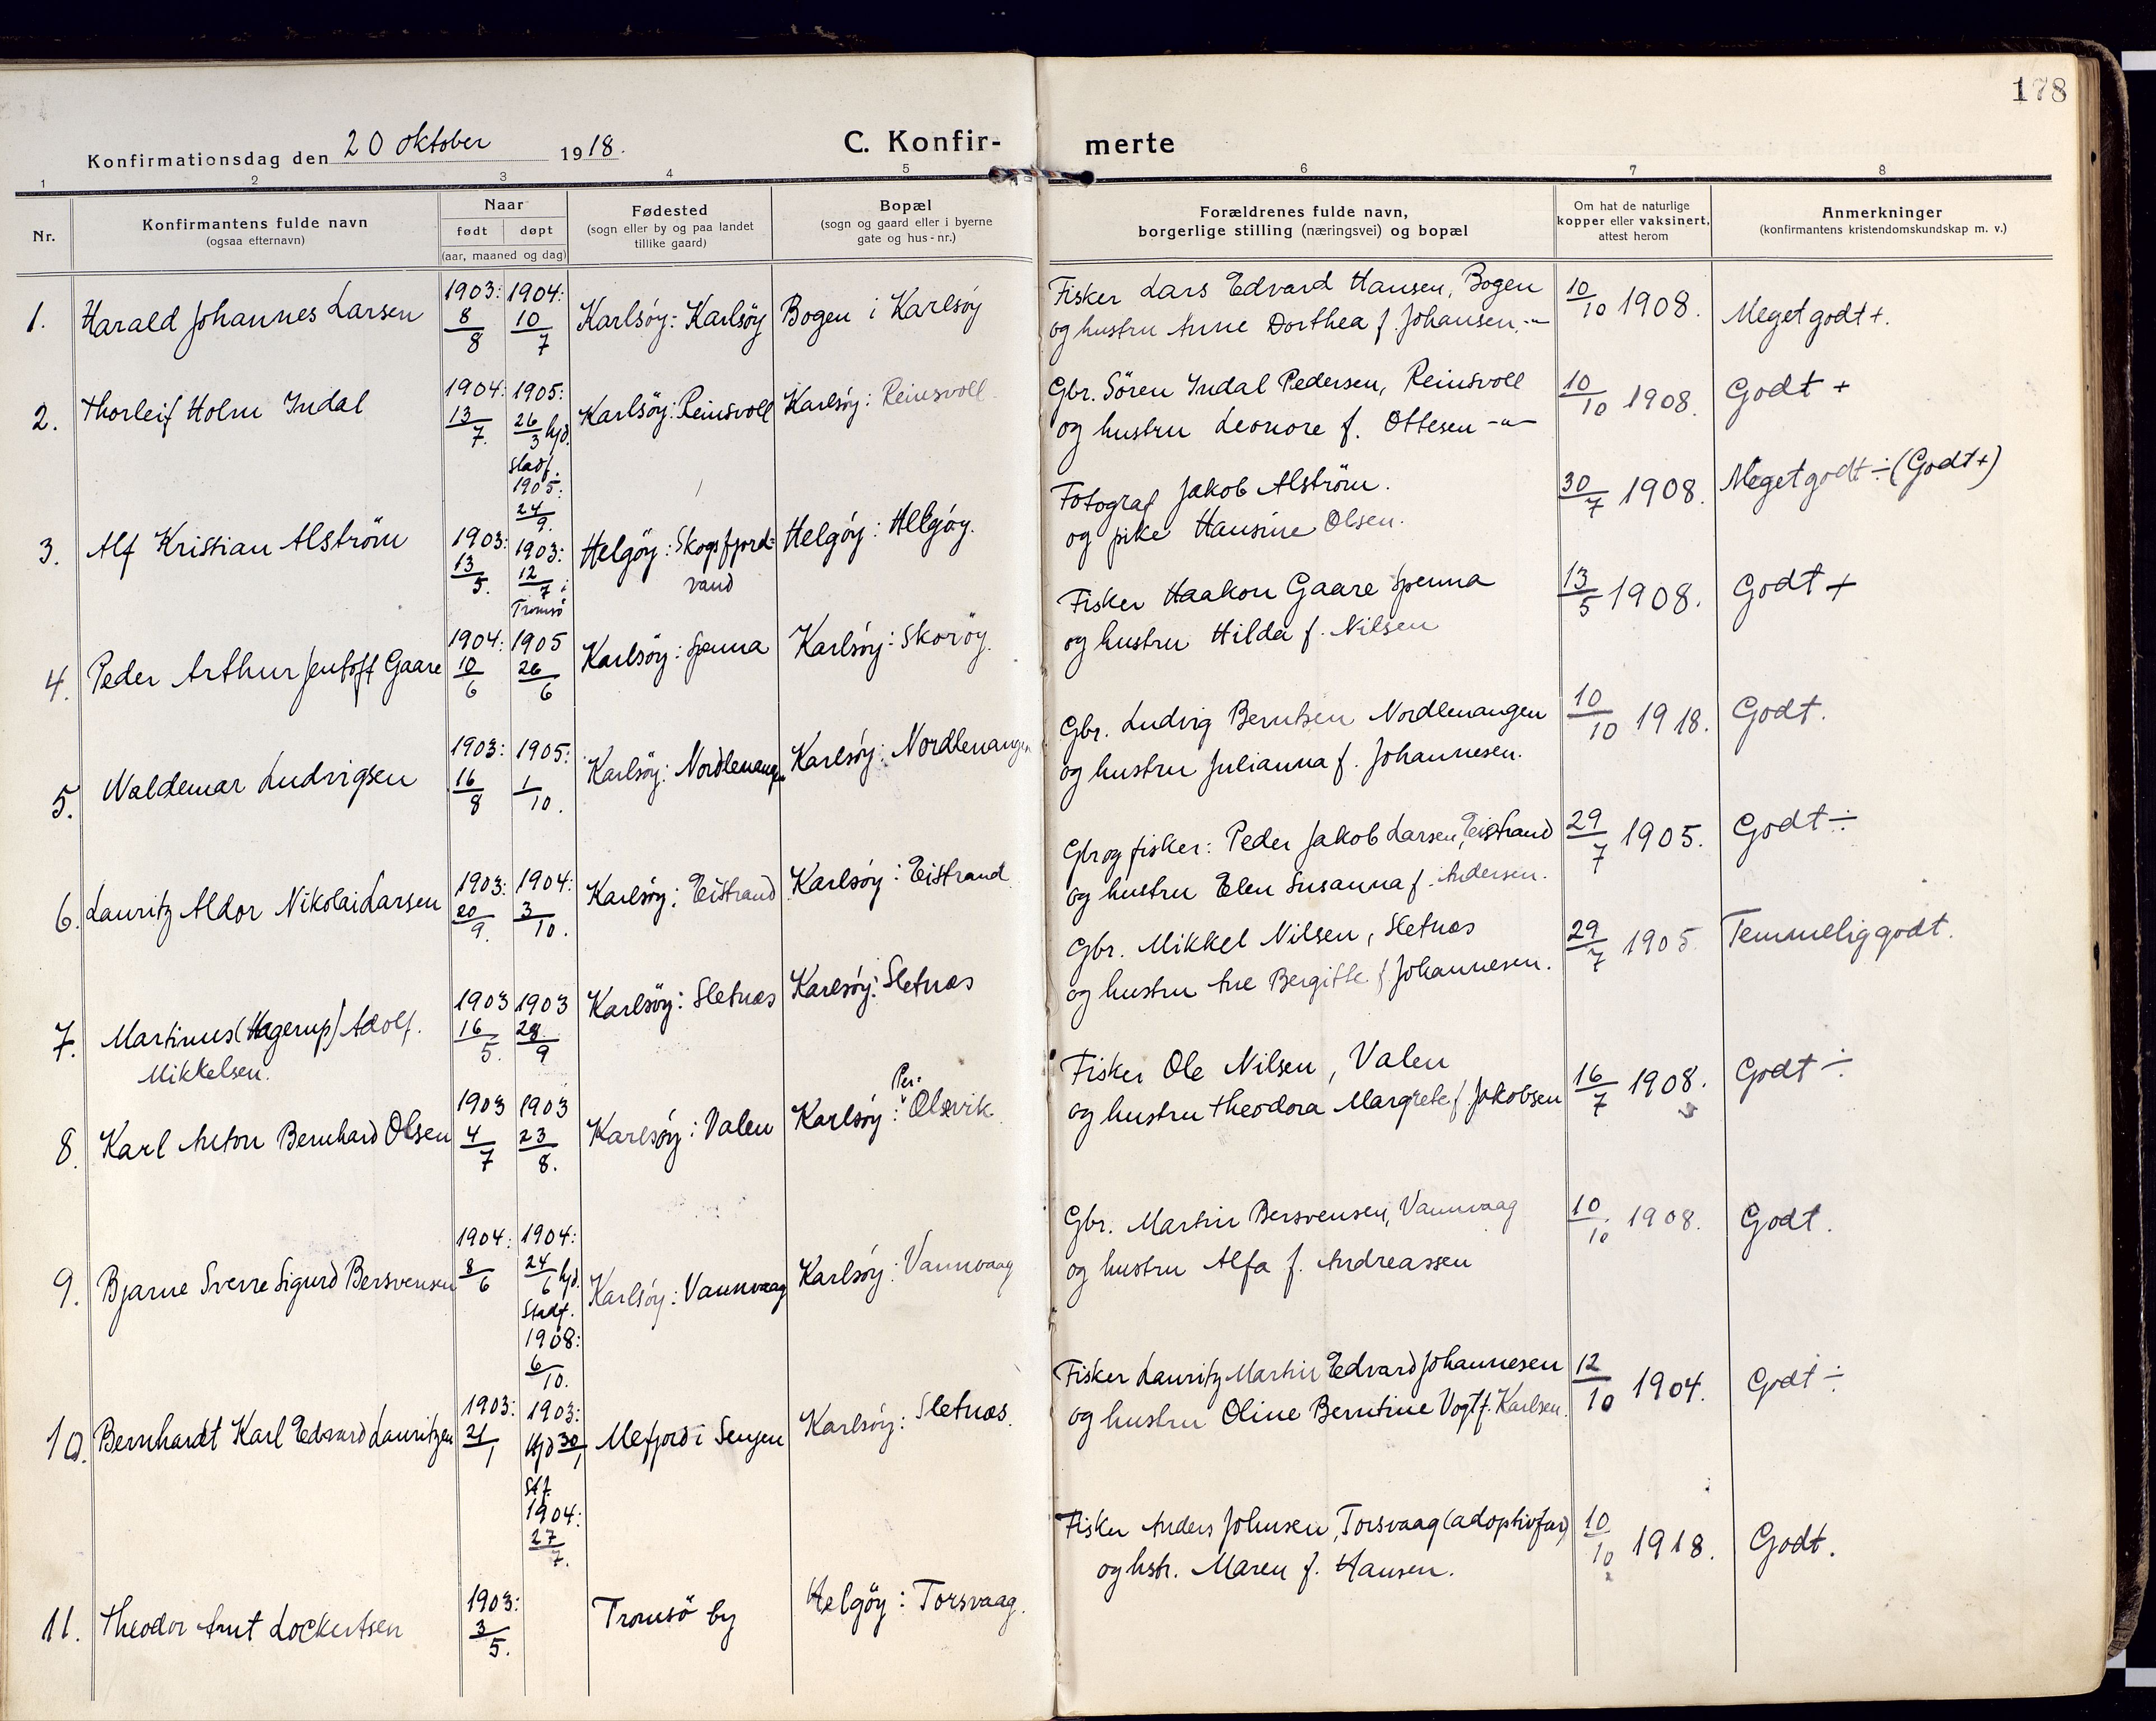 178
Konfirmationsdag den 20 oktober 1918.
C. Konfir-
merte
1 2 3 4 5 6 7 8
Nr.
Konfirmantens fulde navn
(ogsaa efternavn)
Naar
født døpt
(aar, maaned og dag)
Fødested
(sogn eller by og paa landet
tillike gaard)
Bopæl
(sogn og gaard eller i byerne
gate og hus-nr.)
Forældrenes fulde navn,
borgerlige stilling (næringsvei) og bopæl
Om hat de naturlige
kopper eller vaksinert,
attest herom
Anmerkninger
(konfirmantens kristendomskundskap m. v.)
1. Harald Johannes Larsen 1903: 8/8 1904: 10/7 Karlsöy: Karlsöy Bogen i Karlsöy
Fisker Lars Edvard Hansen, Bogen
og hustru Anne Dorthea f. Johansen. -"-
10/10 1908. Meget godt +.
2. Thorleif Holm Indal 1904: 13/7. 1905: 26/3 hjd. Stadf. 1905: 24/9. Karlsöy: Reinsvoll Karlsöy: Reinsvoll.
Gbr. Sören Indal Pedersen, Reinsvoll
og hustru Leonore f. Ottesen -"-
10/10 1908. Godt +
3. Alf Kristian Alström 1903: 13/5. 1903: 12/7 i Tromsö Helgöy: Skogsfjord=
vand
Helgöy: Helgöy.
Fotograf Jakob Alström.
og pike Hansine Olsen.
30/7 1908. Meget godt ÷ (Godt +)
4. Peder Arthur Jentoft Gaare 1904: 10/6 1905 26/6 Karlsöy: Spenna Karlsöy: Skoröy.
Fisker Haakon Gaare Spenna
og hustru Hilda f. Nilsen
13/5 1908. Godt +
5. Waldemar Ludvigsen 1903: 16/8 1905: 1/10. Karlsöy: Nordlenangen Karlsöy: Nordlenangen
Gbr. Ludvig Berntsen Nordlenangen
og hustru Julianna f. Johannesen.
10/10 1918. Godt.
6. Lauritz Aldor Nikolai Larsen 1903: 20/9. 1904: 3/10. Karlsöy: Eistrand Karlsöy: Eistrand
Gbr og fisker: Peder Jakob Larsen, Eistrand
og hustru Elen Susanna f. Andersen.
29/7 1905. Godt ÷
7. Martinus (Hagerup) Adolf.
Mikkelsen.
1903 16/5. 1903 28/9 Karlsöy: Sletnæs Karlsöy: Sletnæs
Gbr. Mikkel Nilsen, Sletnæs
og hustru Ane Bergitte f Johannesen.
29/7 1905. Temmelig godt.
8. Karl Anton Bernhard Olsen 1903 4/7 1903 23/8. Karlsöy: Valen Karlsöy: Per-"Olsvik.
Fisker Ole Nilsen, Valen
og hustru Theodora Margrete f Jakobsen
16/7 1908. Godt ÷
9. Bjarne Sverre Sigurd Bersvensen 1904: 8/6 1904: 24/6 hjd. Stadf. 1908: 6/10. Karlsöy: Vannvaag Karlsöy: Vannvaag
Gbr. Martin Bersvensen, Vannvaag
og hustru Alfa f. Andreassen
10/10 1908. Godt.
10. Bernhardt Karl Edvard Lauritzen 1903: 21/1 1903: Hjd 30/1 Stf. 1904: 27/7. Mefjord i Senjen Karlsöy: Sletnæs.
Fisker Lauritz Martin Edvard Johannesen
og hustru Oline Berntine Vogt f. Karlsen.
12/10 1904. Godt ÷
11. Theodor Arnt Lockertsen 1903: 3/5. Tromsö by Helgöy: Torsvaag.
Fisker Anders Johnsen, Torsvaag (adoptivfar)
og hstr. Maren f. Hansen.
10/10 1918. Godt.